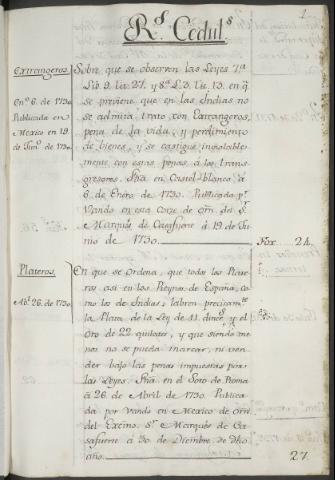 1.
Rs. Ceduls.
Extrangeros.
En.º 6. de 1730.
Publicada en
Mexico en 19.
de Jun.º de 1730.
Sobre que se observen las Leyes 7.ª
Lib. 9. tit. 27. y 8.ª L. 3. tit. 13. en q.
se previene que en las Indias no
se admita trato con Extrangeros,
pena de la vida, y perdimiento
de bienes, y se castigue inviolable
mente con estas penas à los trans
gresores. Fha. en Castel-blanco à
6 de Enero de 1730. Publicada p.r
Vando en esta Corte de orn. del S.r
Marquès de Casafuerte à 19 de Ju
nio de 1730.
Fox. 24.
Plateros.
Ab.l 26. de 1730.
En que se Ordena, que todos los Plate
ros asi en los Reynos de España, co
mo los de Indias, labren precisam.te
la Plata de la Ley de 11. din.s y el
Oro de 22 quilates, y que siendo me
nos no se pueda marcar, ni ven
der bajo las penas impuestas por
las Leyes. Fha. en el Soto de Roma
à 26 de Abril de 1730. Publica
da por Vando en Mexico de orn.
del Excmo. S.r Marquès de Ca
safuerte à 30 de Diciembre de dho
año.
27.